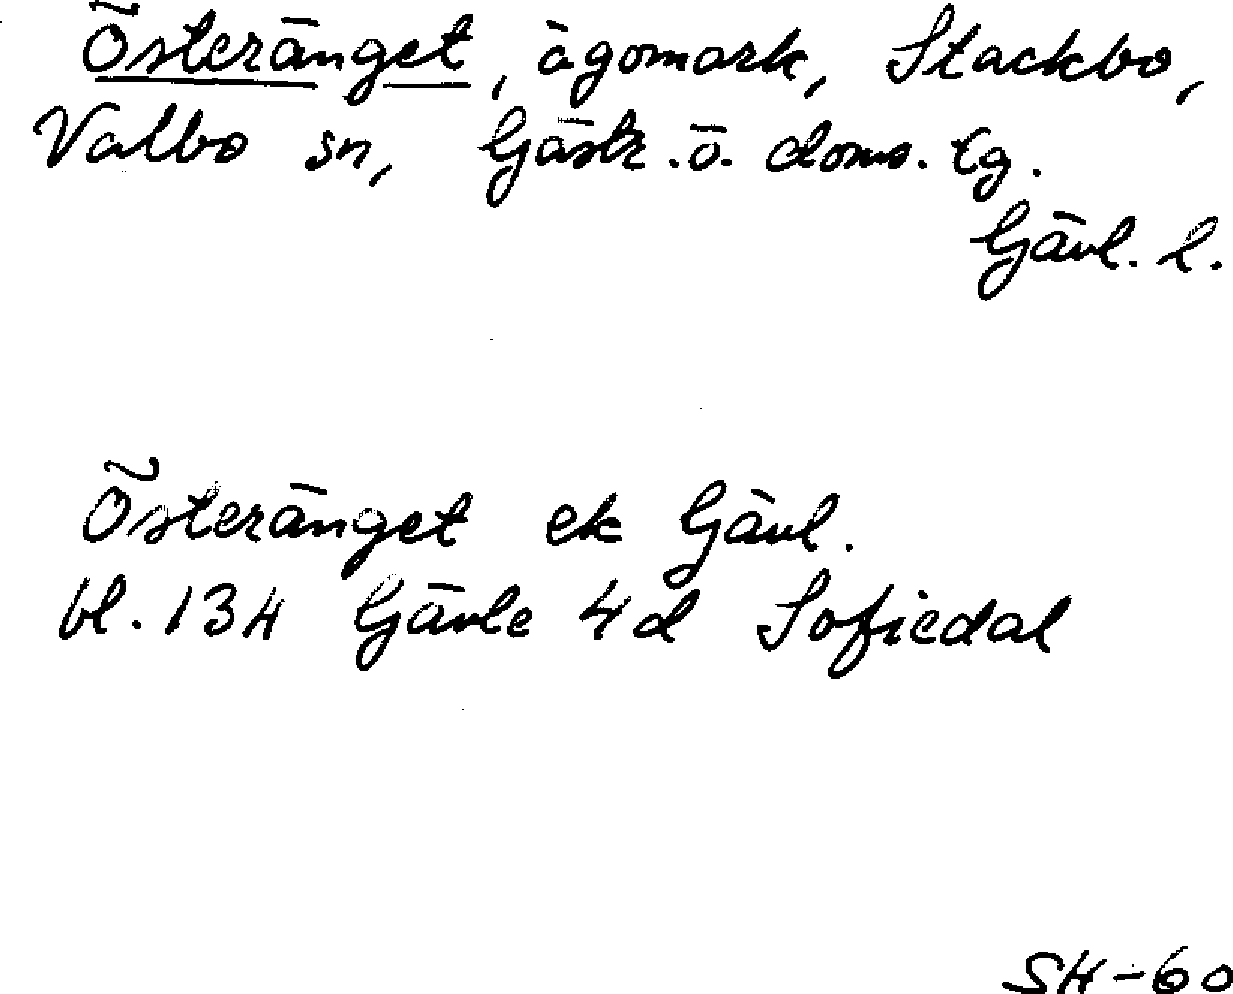 Österänget, ägomark, Stackbo,
Valbo sn, Gästr. ö. doms. lg.
Gävl. l.
Österänget ek Gävl.
bl. 134 Gävle 4d Sofiedal
SH-60